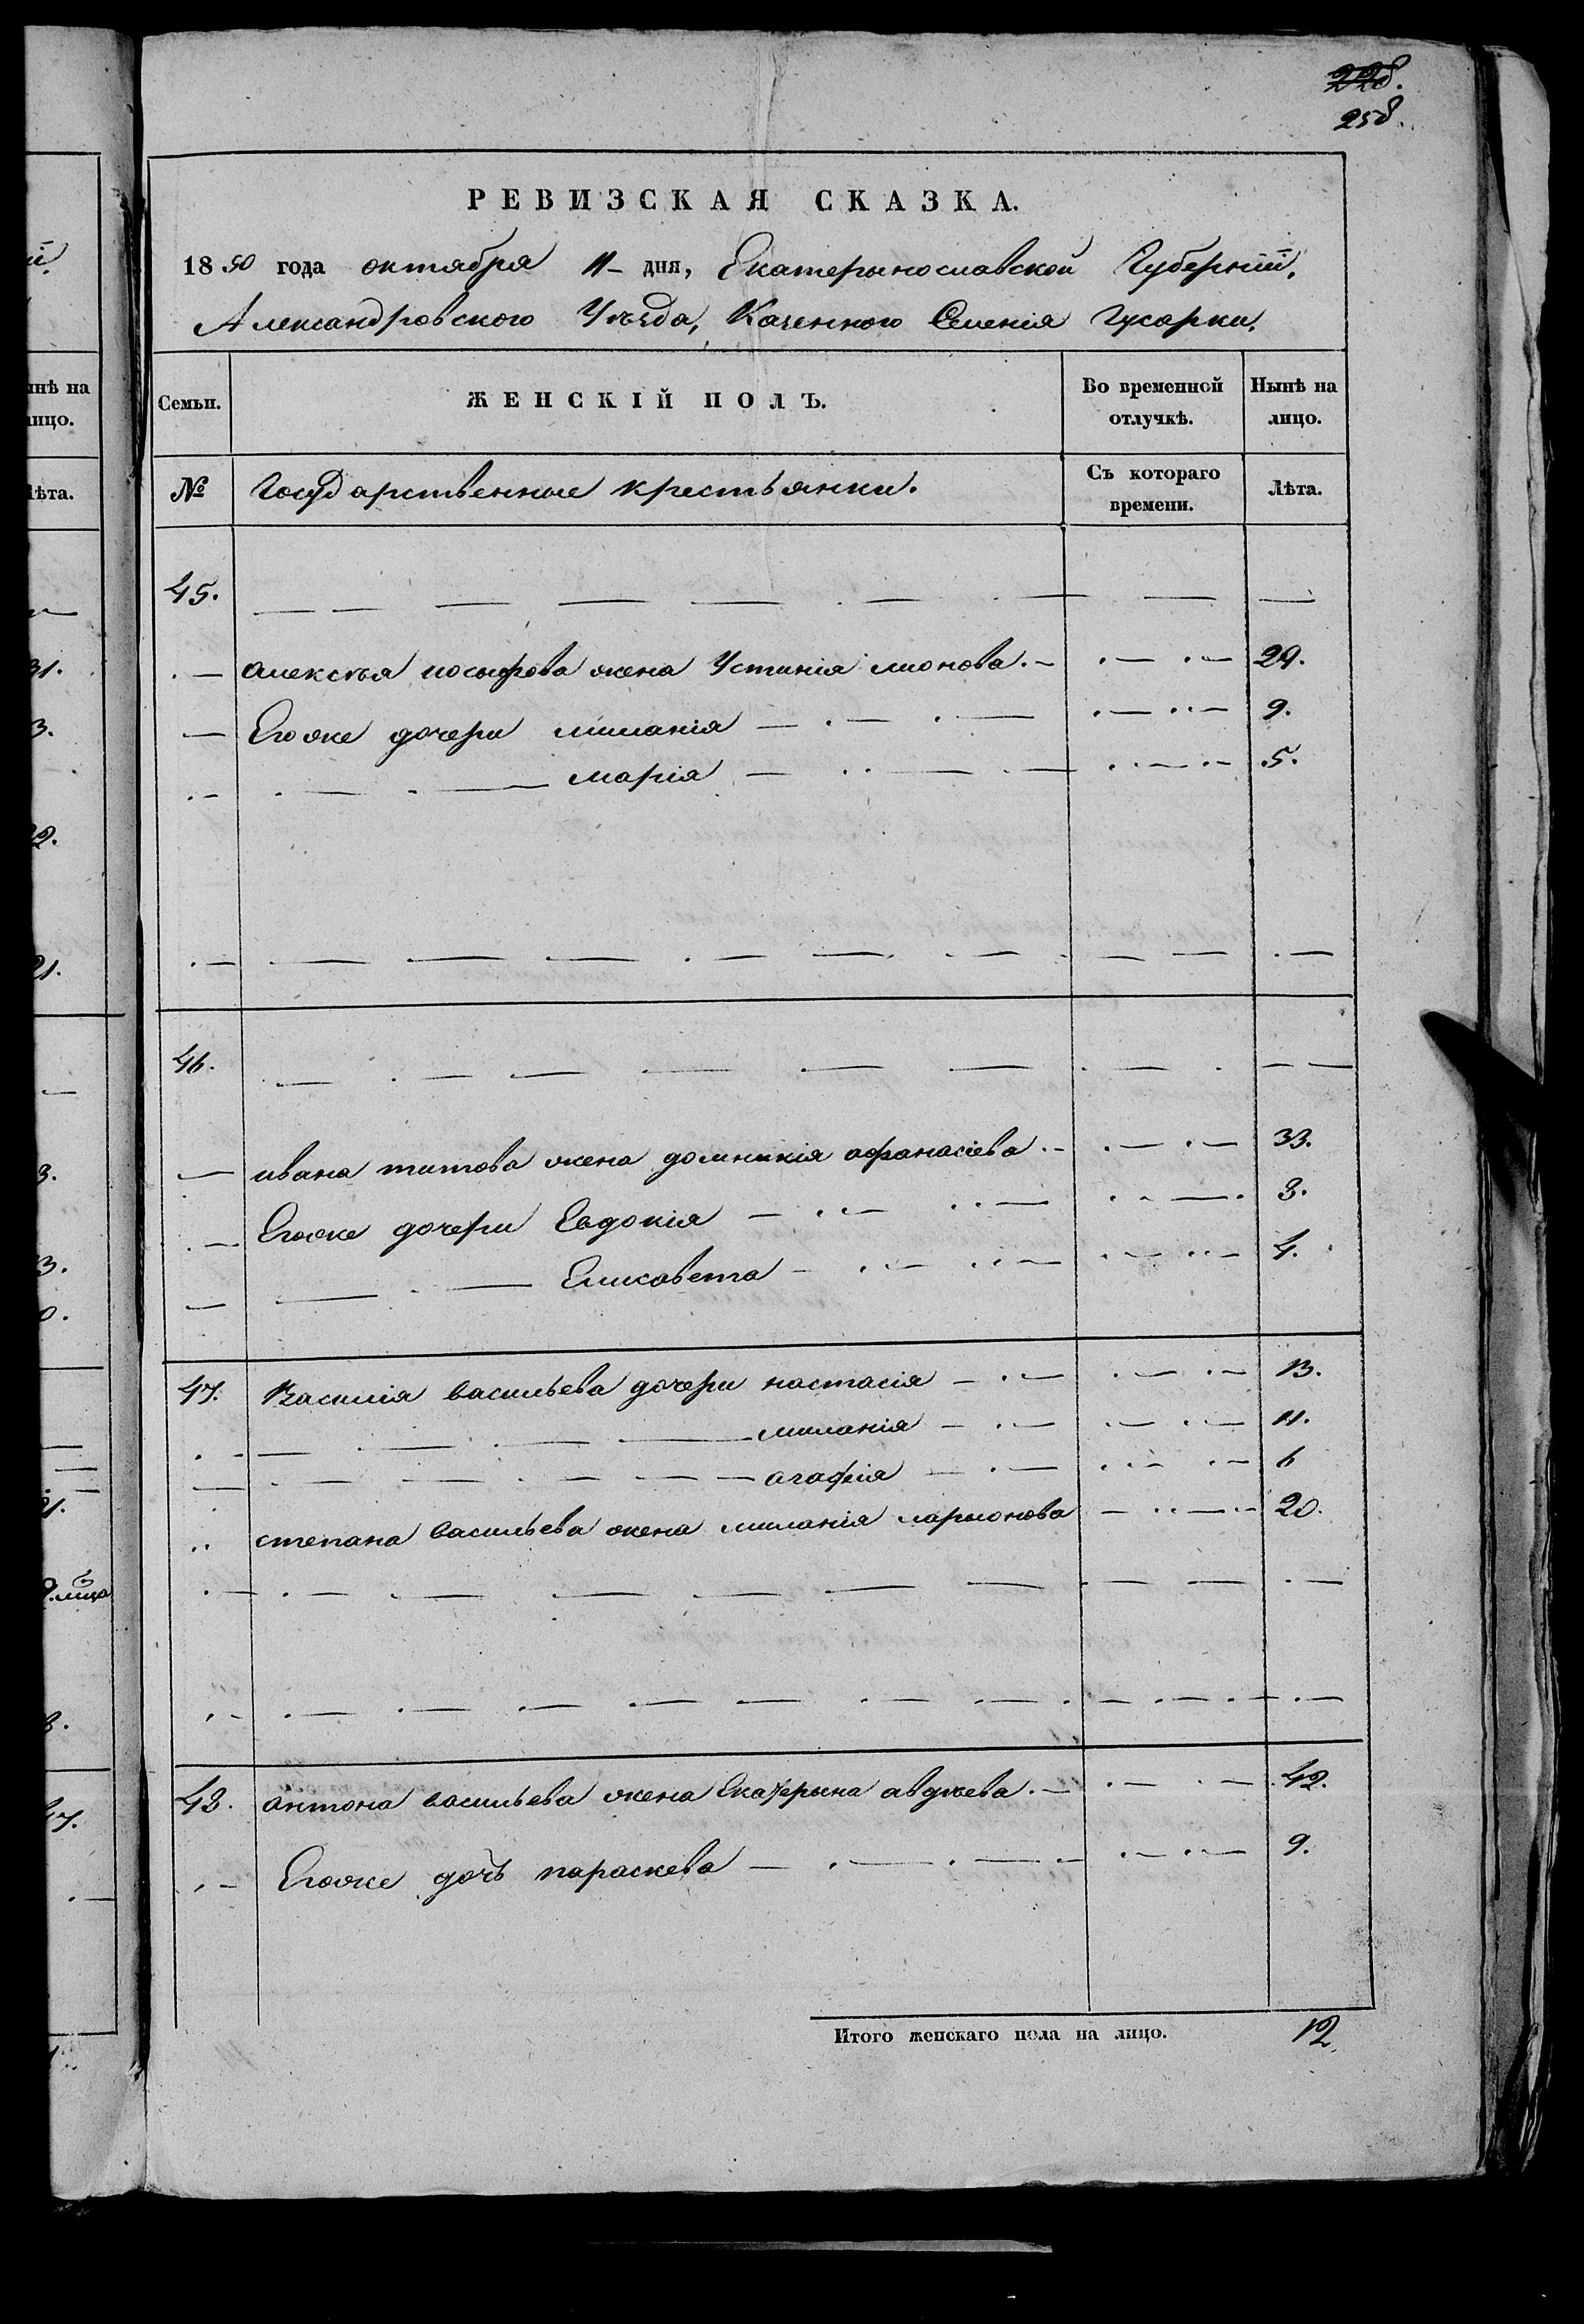 228.
258.
РЕВИЗСКАЯ СКАЗКА.
1850 года октября 11- дня, Екатерынославской Губерніи,
Александровского Уѣзда, Казенного Селенія Гусарки.
Семьи. ЖЕНСКІЙ ПОЛЪ. Во временной отлучкѣ. Нынѣ на лицо.
№ Государственные крестьянки. Съ котораго времени. Лѣта.
45.
Алексѣя жена Устинія 29.
Егоже дочери миланія 9.
марія 5.
46.
ивана титова жена домникія афанасіева 33.
Егоже дочери Евдокія 8.
Елисавета 4.
47. Василія васильева дочери настасія 13.
миланія 11.
агафія 6
степана васильева жена миланія ларионова 20.
48. антона васильева жена Екатерына авдѣева 42.
Егоже дочь параскева 9.
Итого женскаго пола на лицо. 12
нѣ на
ицо.
ѣта.
31.
3.
2.
21.
3.
3.
0.
лица
47.